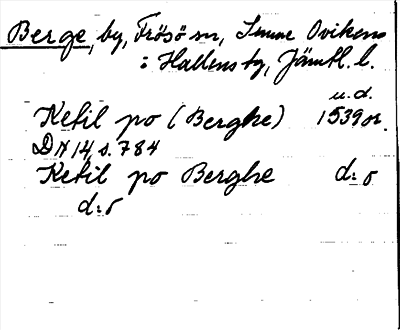 Berge, by, Frösö sn, Sunne Ovikens
: Hallens tg, Jämtl. l.
u.d.
Ketil po (Berghe) 1539 or.
DN 14 s. 784
Ketil po Berghe d:o
d:o